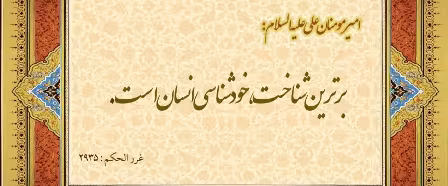 امیرمومنان علی علیه‌السلام:
برترین شناخت، خودشناسی انسان است.
غرر الحکم: ۲۹۳۵